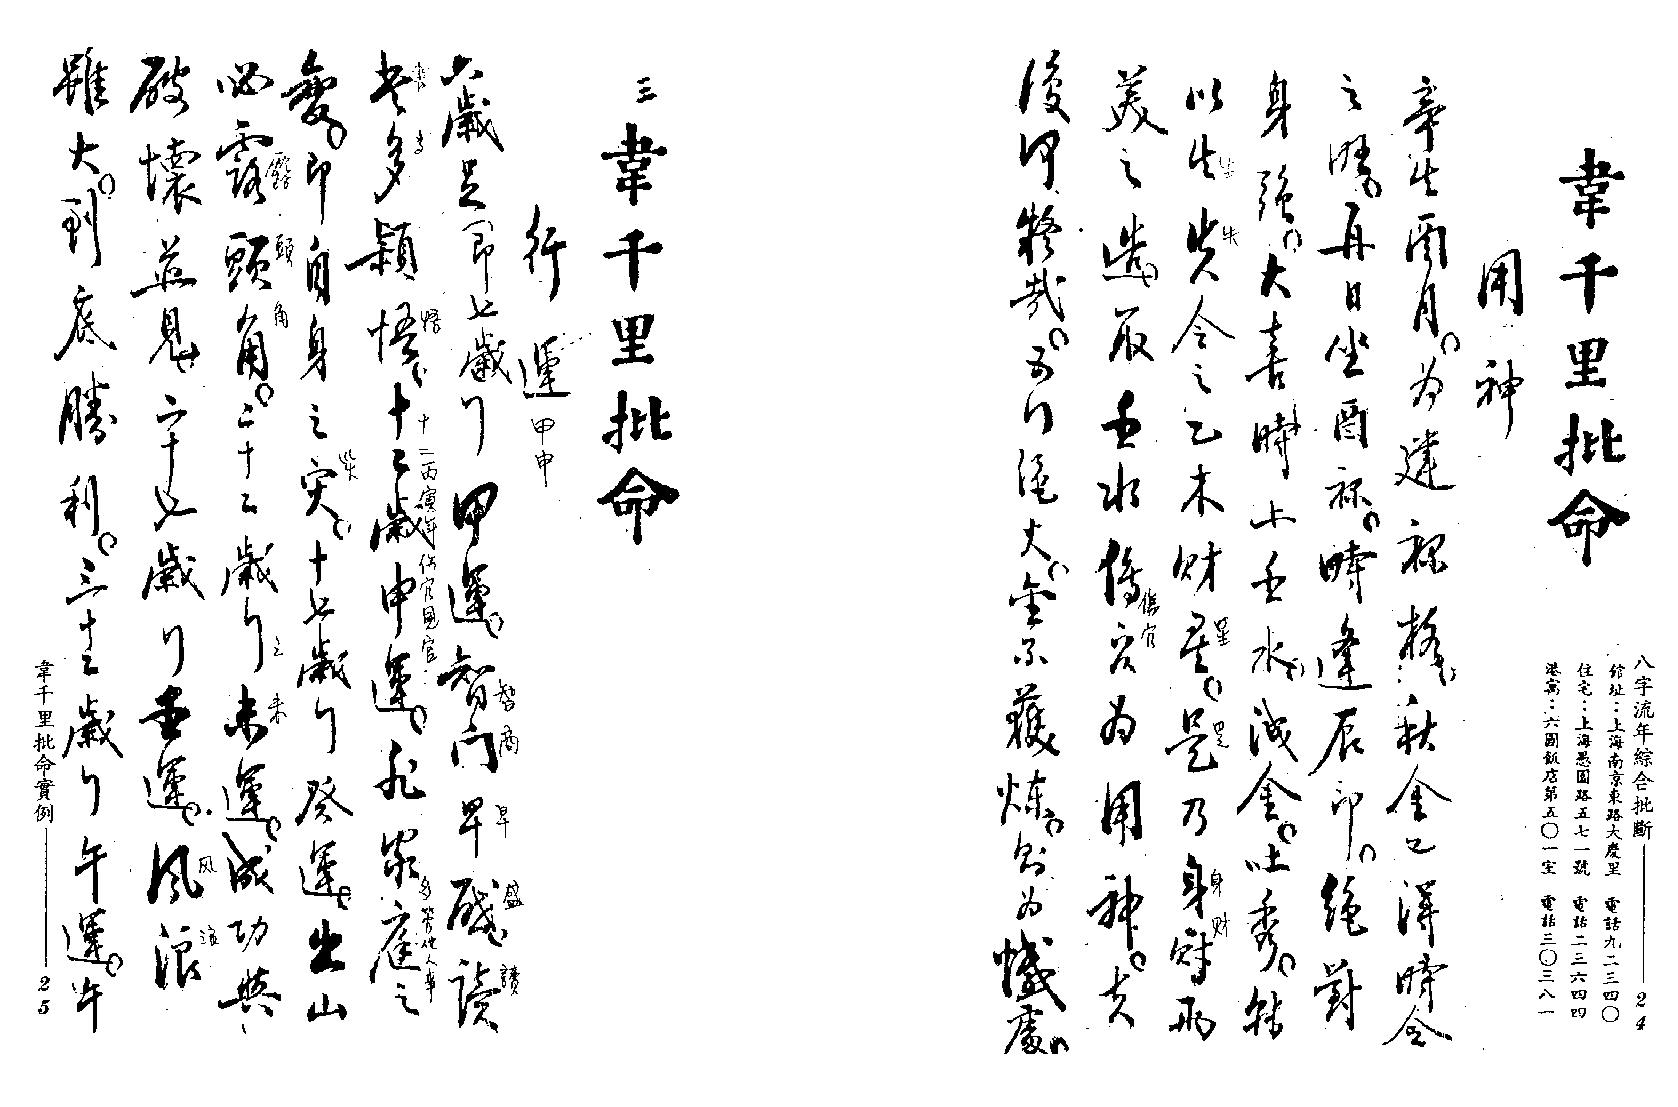 八字流年綜合批斷
24
館址：上海南京東路大慶里　電話九二三四〇
住宅：上海愚園路五七一號　電話二三六四四
港寓：六國飯店第五〇一室　電話三〇三八一
韋千里批命
用神
辛生酉月。為建祿格。秋金已得時令
之勝。再日坐酉祿。時逢辰印。絕對
身強。大喜時上壬水。洩金。吐秀。特
以生失令之乙木財星。是乃身財兩
美之造。取壬水傷官為用神。
後何疑哉。五行 火。金不獲煉。則為憾處。
三
韋千里批命
行運 甲申
六歲足即七歲行甲運。智門早啟。讀
書多穎悟。十二歲申運。 家庭之
變。即自身之災。十七歲行癸運。出山
必露頭角。二十二歲行未運。成功與
破壞並見。二十七歲行壬運。風浪
雖大。到底勝利。三十二歲行午運。午
韋千里批命實例
25